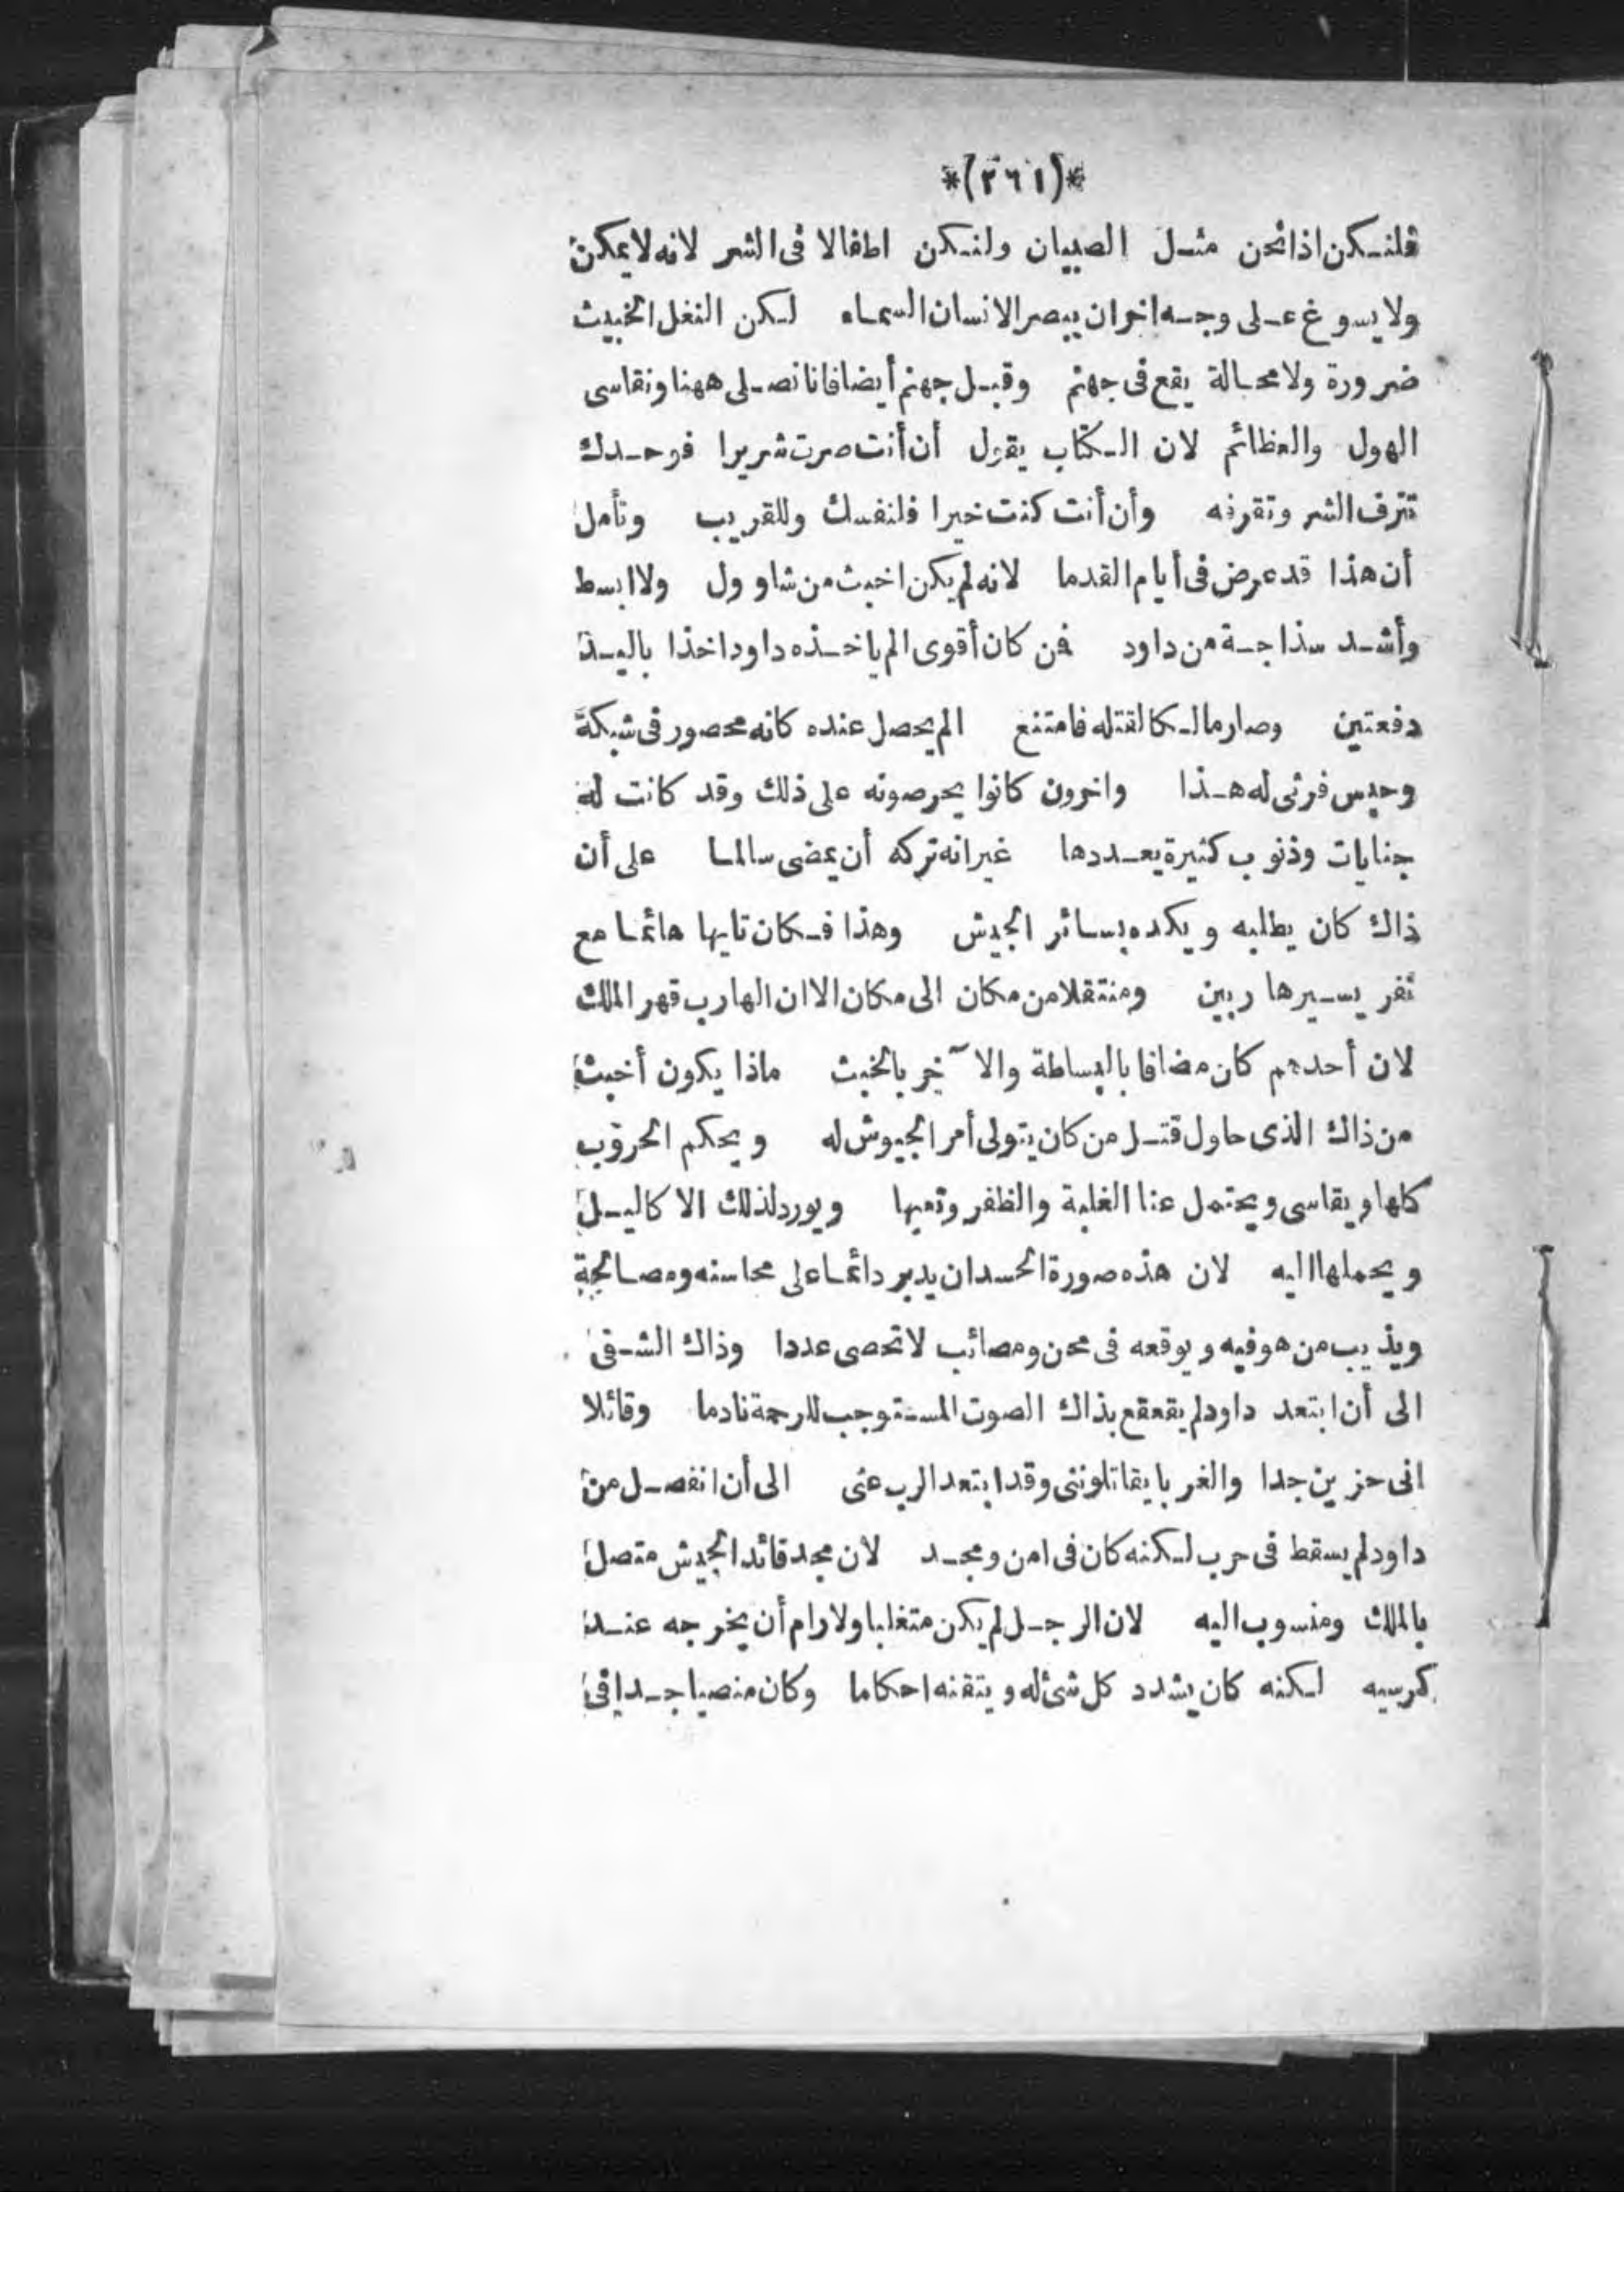 *(٢٦١)*
فلنكن اذا نحن مثل الصبيان ولنكن اطفالا فى الشر لانه لايمكن
ولايسوغ على وجه اخر ان يبصر الانسان السماء لكن النغل الخبيث
ضرورة ولا محالة يقع فى جهنم وقبل جهنم أيضا فاننا نصلى ههنا ونقاسى
الهول والعظائم لان الكتاب يقول أن أنت صرت شريرا فوحدك
تنزف الشر وتقرفه وأن أنت كنت خيرا فلنفسك وللقريب وتأمل
أن هذا قد عرض فى أيام القدما لانه لم يكن اخبث من شاوول ولا ابسط
وأشد سذاجة من داود فمن كان أقوى الم ياخذه داود اخذا باليد
دفعتين وصار مالكا لقتله فامتنع الم يحصل عنده كانه محصور فى شبكة
وحبس فرثى له هذا واخرون كانوا يحرصونه على ذلك وقد كانت له
جنايات وذنوب كثيرة يعددها غير انه تركه أن يمضى سالما على أن
ذاك كان يطلبه ويكده بسائر الجيش وهذا فكان تايها هائما مع
نفر يسير هاربين ومنتقلا من مكان الى مكان الا ان الهارب قهر الملك
لان أحدهم كان مضافا بالبساطة والآخر بالخبث ماذا يكون أخبث
من ذاك الذى حاول قتل من كان يتولى أمر الجيوش له ويحكم الحروب
كلها ويقاسى ويحتمل عنا الغلبة والظفر وتعبها ويورد لذلك الاكاليل
ويحملها اليه لان هذه صورة الحسد ان يدبر دائما على محاسنه ومصالحة
ويذيب من هو فيه ويوقعه فى محن ومصائب لاتحصى عددا وذاك الشقى
الى أن ابتعد داود لم يقعقع بذاك الصوت المستوجب للرحمة نادما وقائلا
انى حزين جدا والغربا يقاتلوننى وقد ابتعد الرب عنى الى أن انفصل من
داود لم يسقط فى حرب لكنه كان فى امن ومجد لان مجد قائد الجيش متصل
بالملك ومنسوب اليه لان الرجل لم يكن متغلبا ولا رام أن يخرجه عند
كرسيه لكنه كان يشدد كل شئ له ويتقنه احكاما وكان منصبا جدا فى